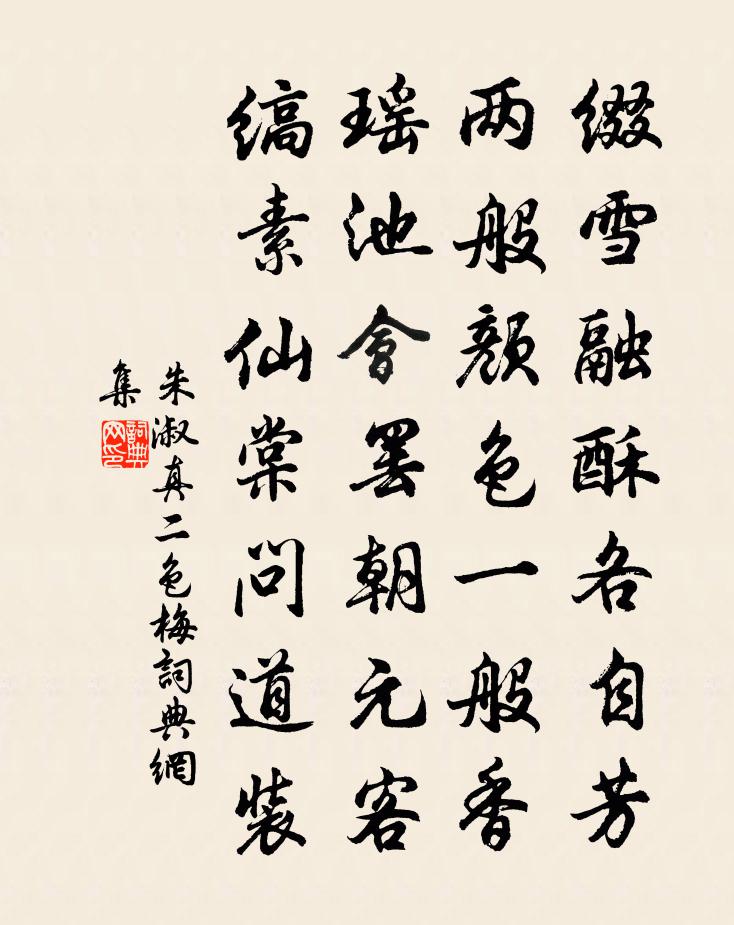 缀雪融酥各自芳
两般颜色一般香
瑶池會罢朝元客
缟素仙棠问道装
朱淑真二色梅詞典網
集
詞典
网印